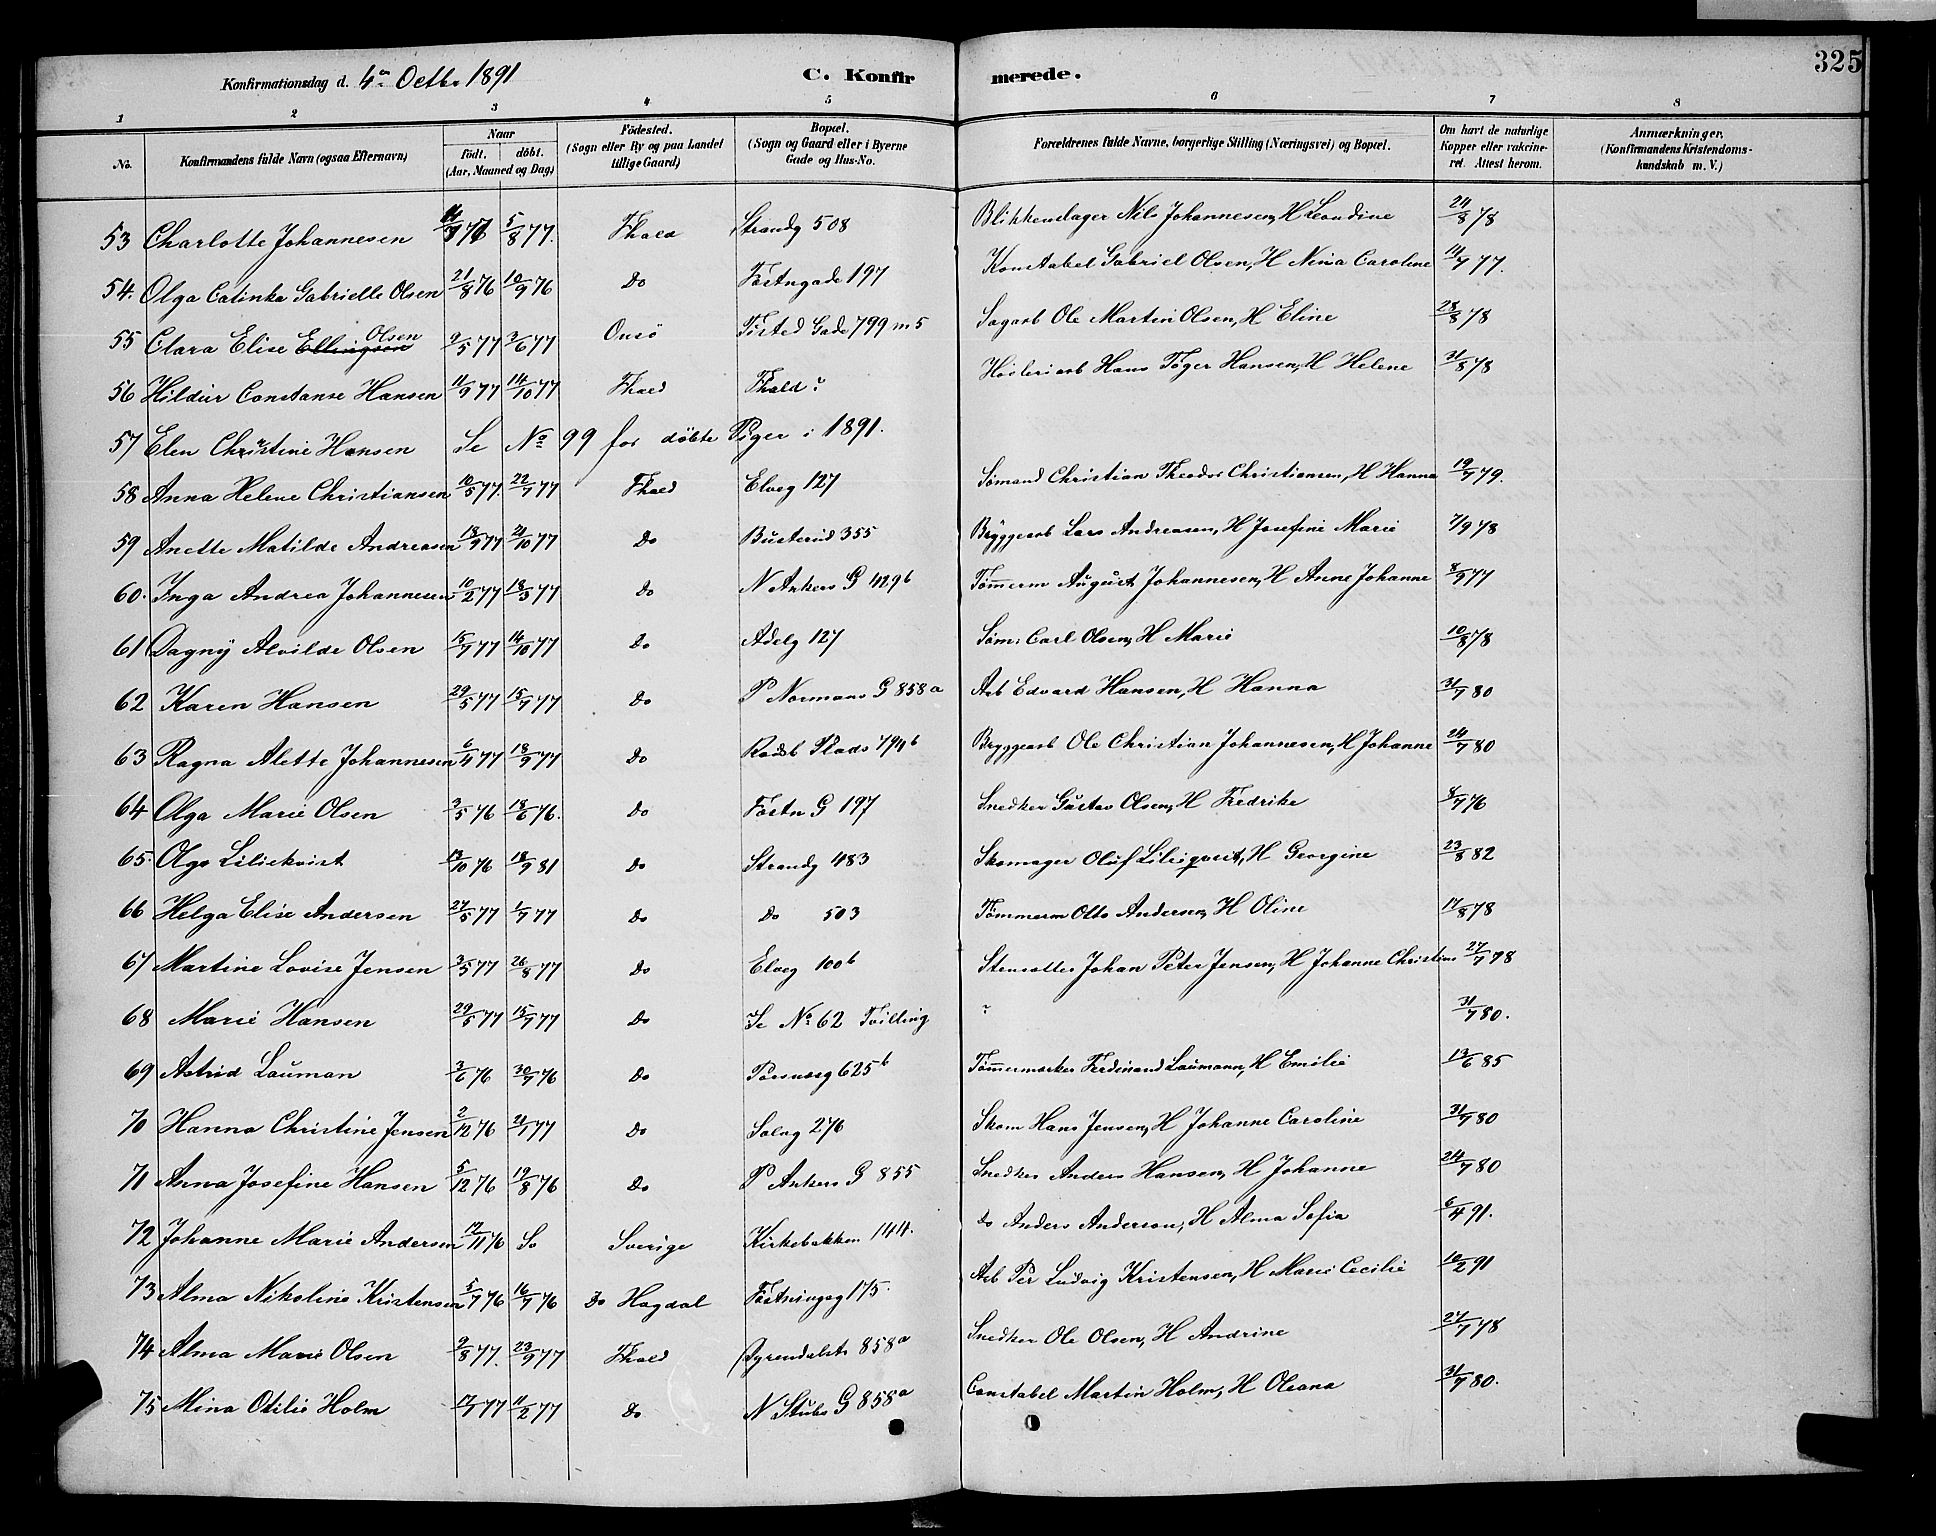 325
Konfirmationsdag d. 4de Octbr 1891 C. Konfirmerede.
1 2 3 4 5 6 7 8
No. Konfirmandens fulde Navn (ogsaa Efternavn) Naar født. døbt. (Aar, Maaned og Dag) Fødested. (Sogn eller By og paa Landet tillige Gaard) Bopæl. (Sogn og Gaard eller i Byerne Gade og Hus-No. Forældrenes fulde Navne, borgerlige Stilling (Næringsvei) og Bopæl. Om havt de naturlige Kopper eller vakcineret. Attest herom. Anmærkninger. (Konfirmandens Kristendomskundskab m. V.)
53 Charlotte Johannesen 77 5/8 77. Fhald Strandg 508 Blikkenslager Nils Johannesen, H Leondine 24/8 78
54. Olga Catinka Gabrielle Olsen 21/8 76 10/9 76 Do Fæstngade 197 Konstabel Gabriel Olsen, H Nina Caroline 11/7 77.
55 Clara Elise Ellingsen Olsen 9/5 77 3/6 77 Onsö Tisted Gade 799 m 5 Sagarb Ole Martin Olsen, H Eline 23/8 78
56 Hildur Constanse Hansen 11/9 77 14/10 77 Fhald Fhald: Høvleriarb Hans Töger Hansen, H Helene 31/8 78
57 Elen Christine Hansen Se No 99 for døbte Piger i 1891.
58 Anna Helene Christiansen 10/5 77. 22/7 77 Fhald Elveg 127 Sømand Christian Theodor Christiansen, H Hanna 19/7 79.
59 Anette Matilde Andreasen 13/9 77 21/10 77 Do Busterud 355 Bryggearb Lars Andreasen, H Josefine Marie 7/9 78
60. Inga Andrea Johannesen 10/2 77 18/3 77 Do N Ankers G 429b Tømmerm August Johannesen, H Anne Johanne 8/9 77
61 Dagny Alvilde Olsen 15/7 77 14/10 77 Do Adelg 127 Søm: Carl Olsen, H Marie 10/8 78
62 Karen Hansen 29/5 77 15/7 77 Do P Normans G 858a Arb Edvard Hansen, H Hanna 31/7 80
63 Ragna Alette Johannesen 6/4 77 18/9 77 Do Raadst Plads 794b Bryggearb Ole Christian Johannesen, H Johanne 24/7 80
64 Olga Marie Olsen 3/5 76 18/6 76. Do Fæstn G 197 Snedker Gustav Olsen, H Fredrike 8/7 76
65. Olga Liliekvist 13/10 76 18/9 81 Do Strandg 483 Skomager Oluf Lilieqvist, H Georgine 23/8 82
66 Helga Elise Andersen 27/5 77 1/7 77 Do Do 503 Tømmerm Otto Andersen, H Oline 17/8 78
67 Martine Lovise Jensen 3/5 77 26/8 77 Do Elveg 100b Johan Peter Jensen, H Johanne Christine 27/7 78
68 Marie Hansen 29/5 77 15/7 77 Do Se No 62 Tvilling 31/7 80.
69 Astrid Lauman 3/6 76 30/7 76 Do Porsnesg 625b Tømmermærker Ferdinand Laumann, H Emilie 13/6 85
70 Hanna Christine Jensen 2/12 76 21/1 77 Do Solvg 276 Skom Hans Jensen, H Johanne Caroline 31/7 80
71 Anna Josefine Hansen 5/12 76 19/8 76 Do P Ankers G 855 Snedker Anders Hansen, H Johanne 24/7 80
72 Johanne Marie Andersen 17/11 76 So Sverige Kirkebakken 144. do Anders Anderson, H Alma Sofia 6/4 91.
73 Alma Nikoline Kristensen 5/7 76 16/7 76 Do Hogdal Fæstningsg 175. Arb Per Ludvig Kristensen, H Marie Cecilie 10/2 91
74 Alma Marie Olsen 9/8 77. 23/9 77 Fhald 858a Snedker Ole Olsen, H Andrine 27/7 78
75 Mina Otilie Holm 17/1 77 11/2 77 Do N Stubs G 858a Constabel Martin Holm, H Oleana 31/7 80.